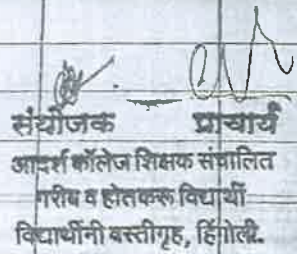 संयोजक प्राचार्य
आदर्श कॉलेज शिक्षक संचालित
गरीब व होतकरू विद्यार्थी
विद्यार्थीनी वस्तीगृह, हिंगोली.